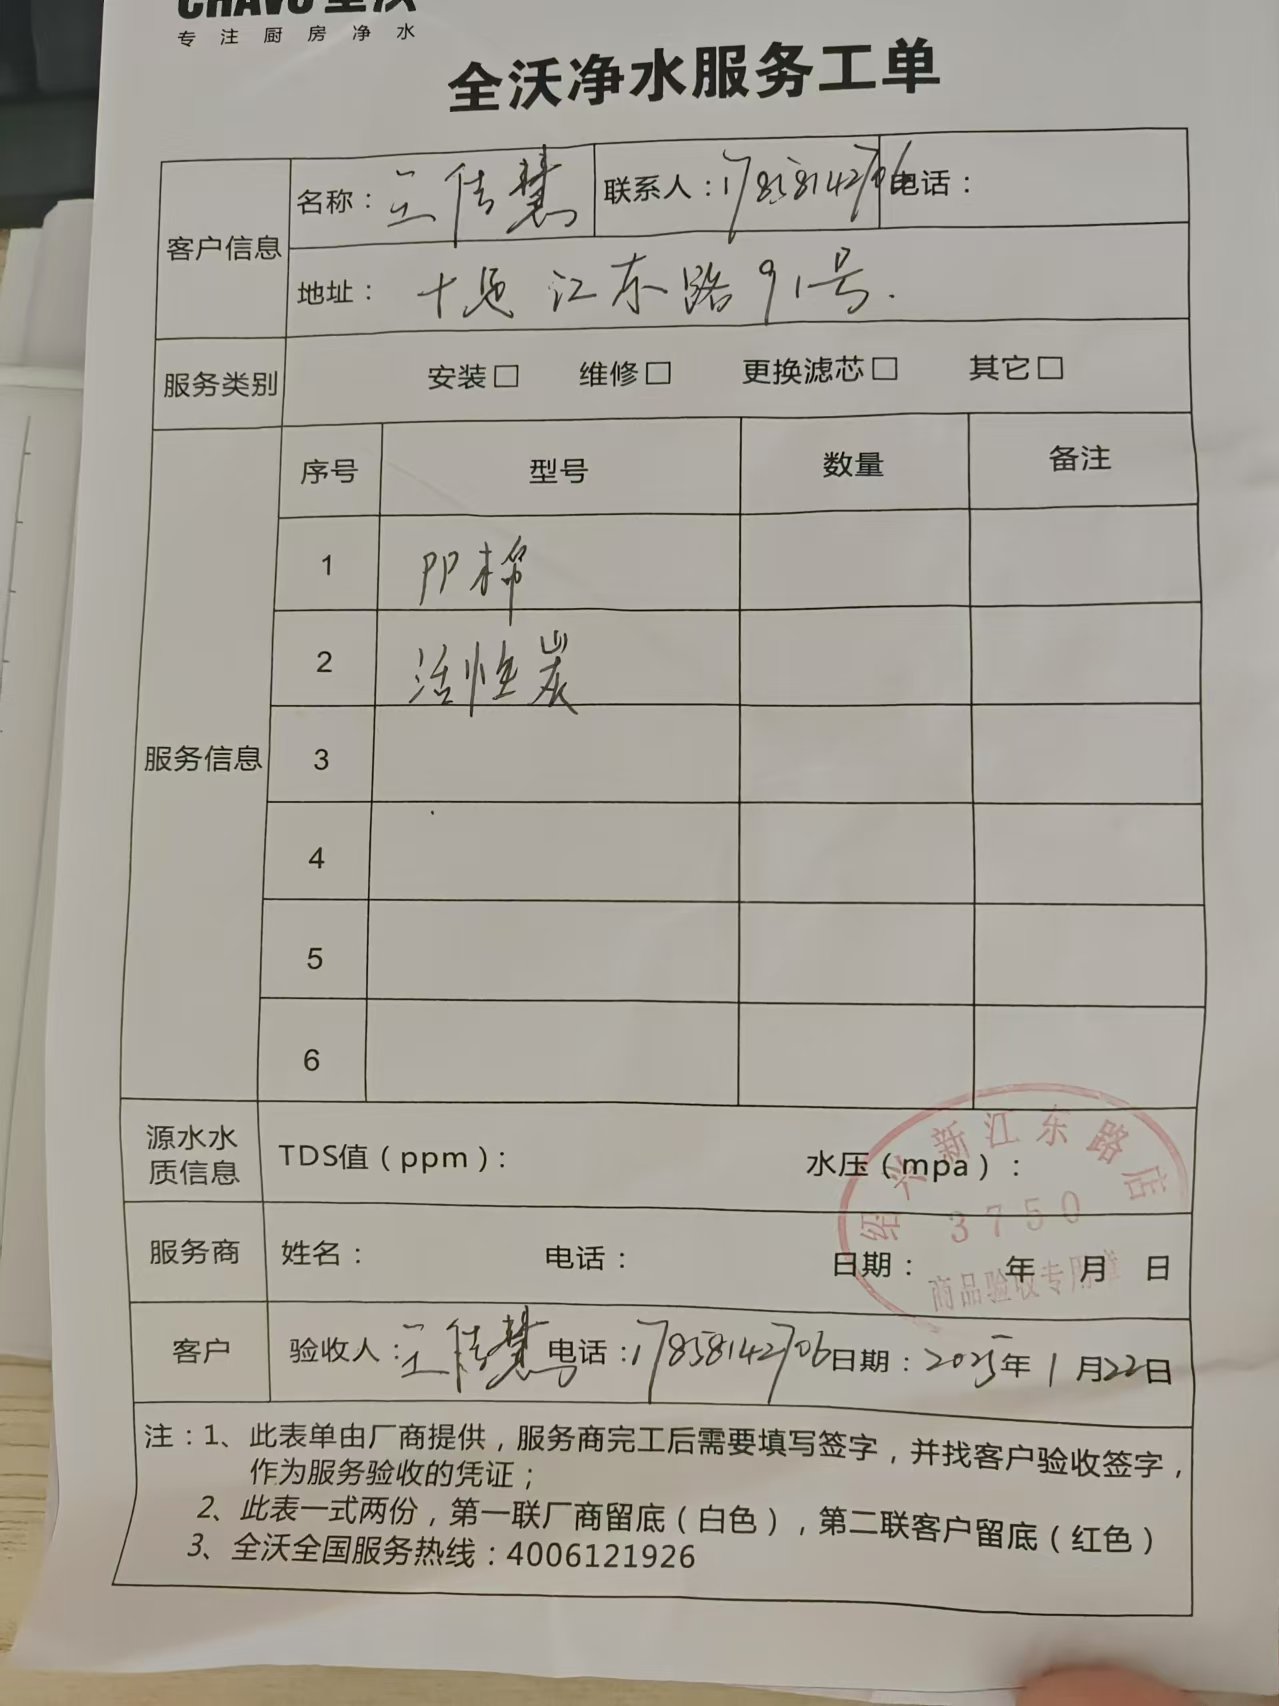 专注厨房净水
全沃净水服务工单
客户信息
名称：王倩慧 联系人：17858142706 电话：
地址： 江东路91号.
服务类别
安装□ 维修□ 更换滤芯□ 其它□
服务信息
序号 型号 数量 备注
1 PP棉
2 活性炭
3
4
5
6
源水水
质信息
TDS值（ppm）: 水压（mpa）:
绍兴新江东路店
3750
商品验收专用章
服务商 姓名： 电话： 日期： 年 月 日
客户 验收人：王倩慧 电话：17858142706 日期：2025年1月22日
注：1、此表单由厂商提供，服务商完工后需要填写签字，并找客户验收签字，
作为服务验收的凭证；
2、此表一式两份，第一联厂商留底（白色），第二联客户留底（红色）
3、全沃全国服务热线：4006121926